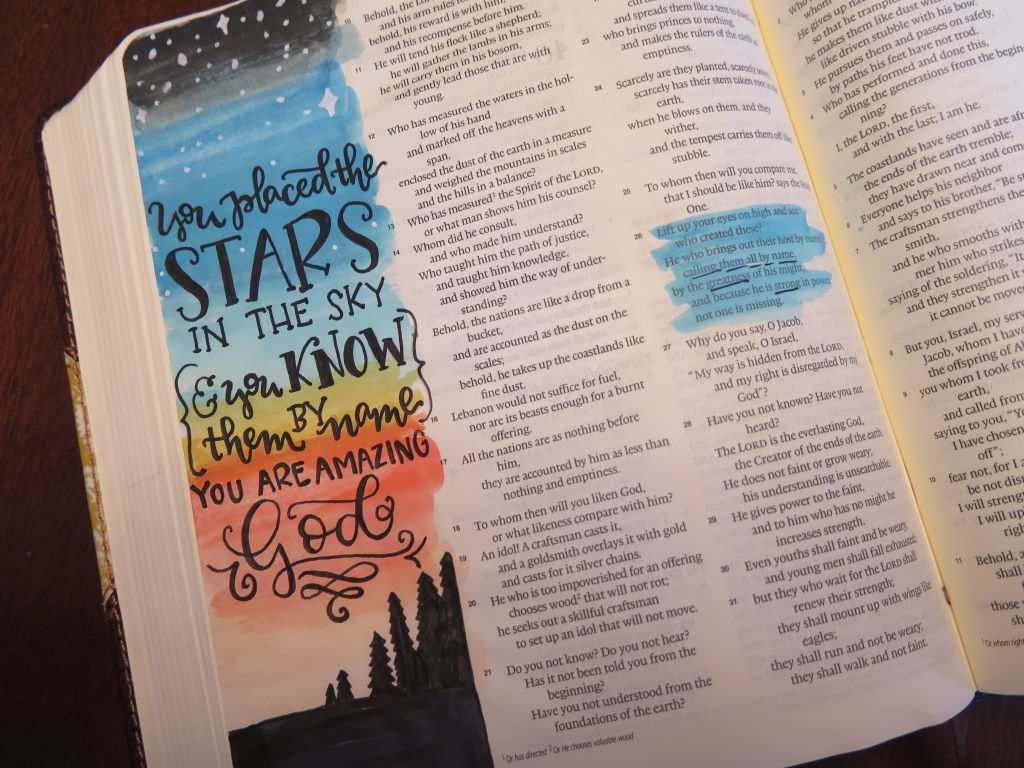 you placed the
STARS
IN THE SKY
{ & you KNOW
them BY name }
YOU ARE AMAZING
God
10 Behold, the
and his arm rules
behold, his reward is with him,
and his recompense before him.
11 He will tend his flock like a shepherd;
he will gather the lambs in his arms;
he will carry them in his bosom,
and gently lead those that are with
young.
12 Who has measured the waters in the hol-
low of his hand
and marked off the heavens with a
span,
enclosed the dust of the earth in a measure
and weighed the mountains in scales
and the hills in a balance?
13 Who has measured¹ the Spirit of the LORD,
or what man shows him his counsel?
14 Whom did he consult,
and who made him understand?
Who taught him the path of justice,
and taught him knowledge,
and showed him the way of under-
standing?
Behold, the nations are like a drop from a
bucket,
and are accounted as the dust on the
scales;
behold, he takes up the coastlands like
fine dust.
16 Lebanon would not suffice for fuel,
nor are its beasts enough for a burnt
offering.
17 All the nations are as nothing before
him,
they are accounted by him as less than
nothing and emptiness.
18 To whom then will you liken God,
or what likeness compare with him?
19 An idol! A craftsman casts it,
and a goldsmith overlays it with gold
and casts for it silver chains.
20 He who is too impoverished for an offering
chooses wood² that will not rot;
he seeks out a skillful craftsman
to set up an idol that will not move.
21 Do you not know? Do you not hear?
Has it not been told you from the
beginning?
Have you not understood from the
foundations of the earth?
¹ Or has directed ² Or He chooses valuable wood
and spreads them like a tent to dwell
23 who brings princes to nothing,
and makes the rulers of the earth as
emptiness.
24 Scarcely are they planted, scarcely sown,
scarcely has their stem taken root in the
earth,
when he blows on them, and they
wither,
and the tempest carries them off like
stubble.
25 To whom then will you compare me,
that I should be like him? says the Holy
One.
26 Lift up your eyes on high and see:
who created these?
He who brings out their host by number,
calling them all by name,
by the greatness of his might,
and because he is strong in power
not one is missing.
27 Why do you say, O Jacob,
and speak, O Israel,
“My way is hidden from the LORD,
and my right is disregarded by my
God”?
28 Have you not known? Have you not
heard?
The LORD is the everlasting God,
the Creator of the ends of the earth.
He does not faint or grow weary;
his understanding is unsearchable.
29 He gives power to the faint,
and to him who has no might he
increases strength.
30 Even youths shall faint and be weary,
and young men shall fall exhausted;
31 but they who wait for the LORD shall
renew their strength;
they shall mount up with wings like
eagles;
they shall run and not be weary;
they shall walk and not faint.
2
He gives up
so that he tramples
he makes them like dust
like driven stubble with his bow.
3 He pursues them and passes on safely,
by paths his feet have not trod.
4 Who has performed and done this,
calling the generations from the
ning?
I, the LORD, the first,
and with the last; I am he.
5 The coastlands have seen and are
the ends of the earth tremble;
they have drawn near and
6 Everyone helps his neighbor
and says to his brother, “Be
7 The craftsman strengthens
smith,
and he who smooths with
mer him who strikes
saying of the soldering, “It
and they strengthen it
it cannot be moved
8 But you, Israel, my
Jacob, whom I have
the offspring of
9 you whom I took
earth,
and called from
saying to you, “You
I have chosen
off”;
10 fear not, for I
be not
I will strengthen
I will
right
11 Behold,
shall
those
¹ Or whom